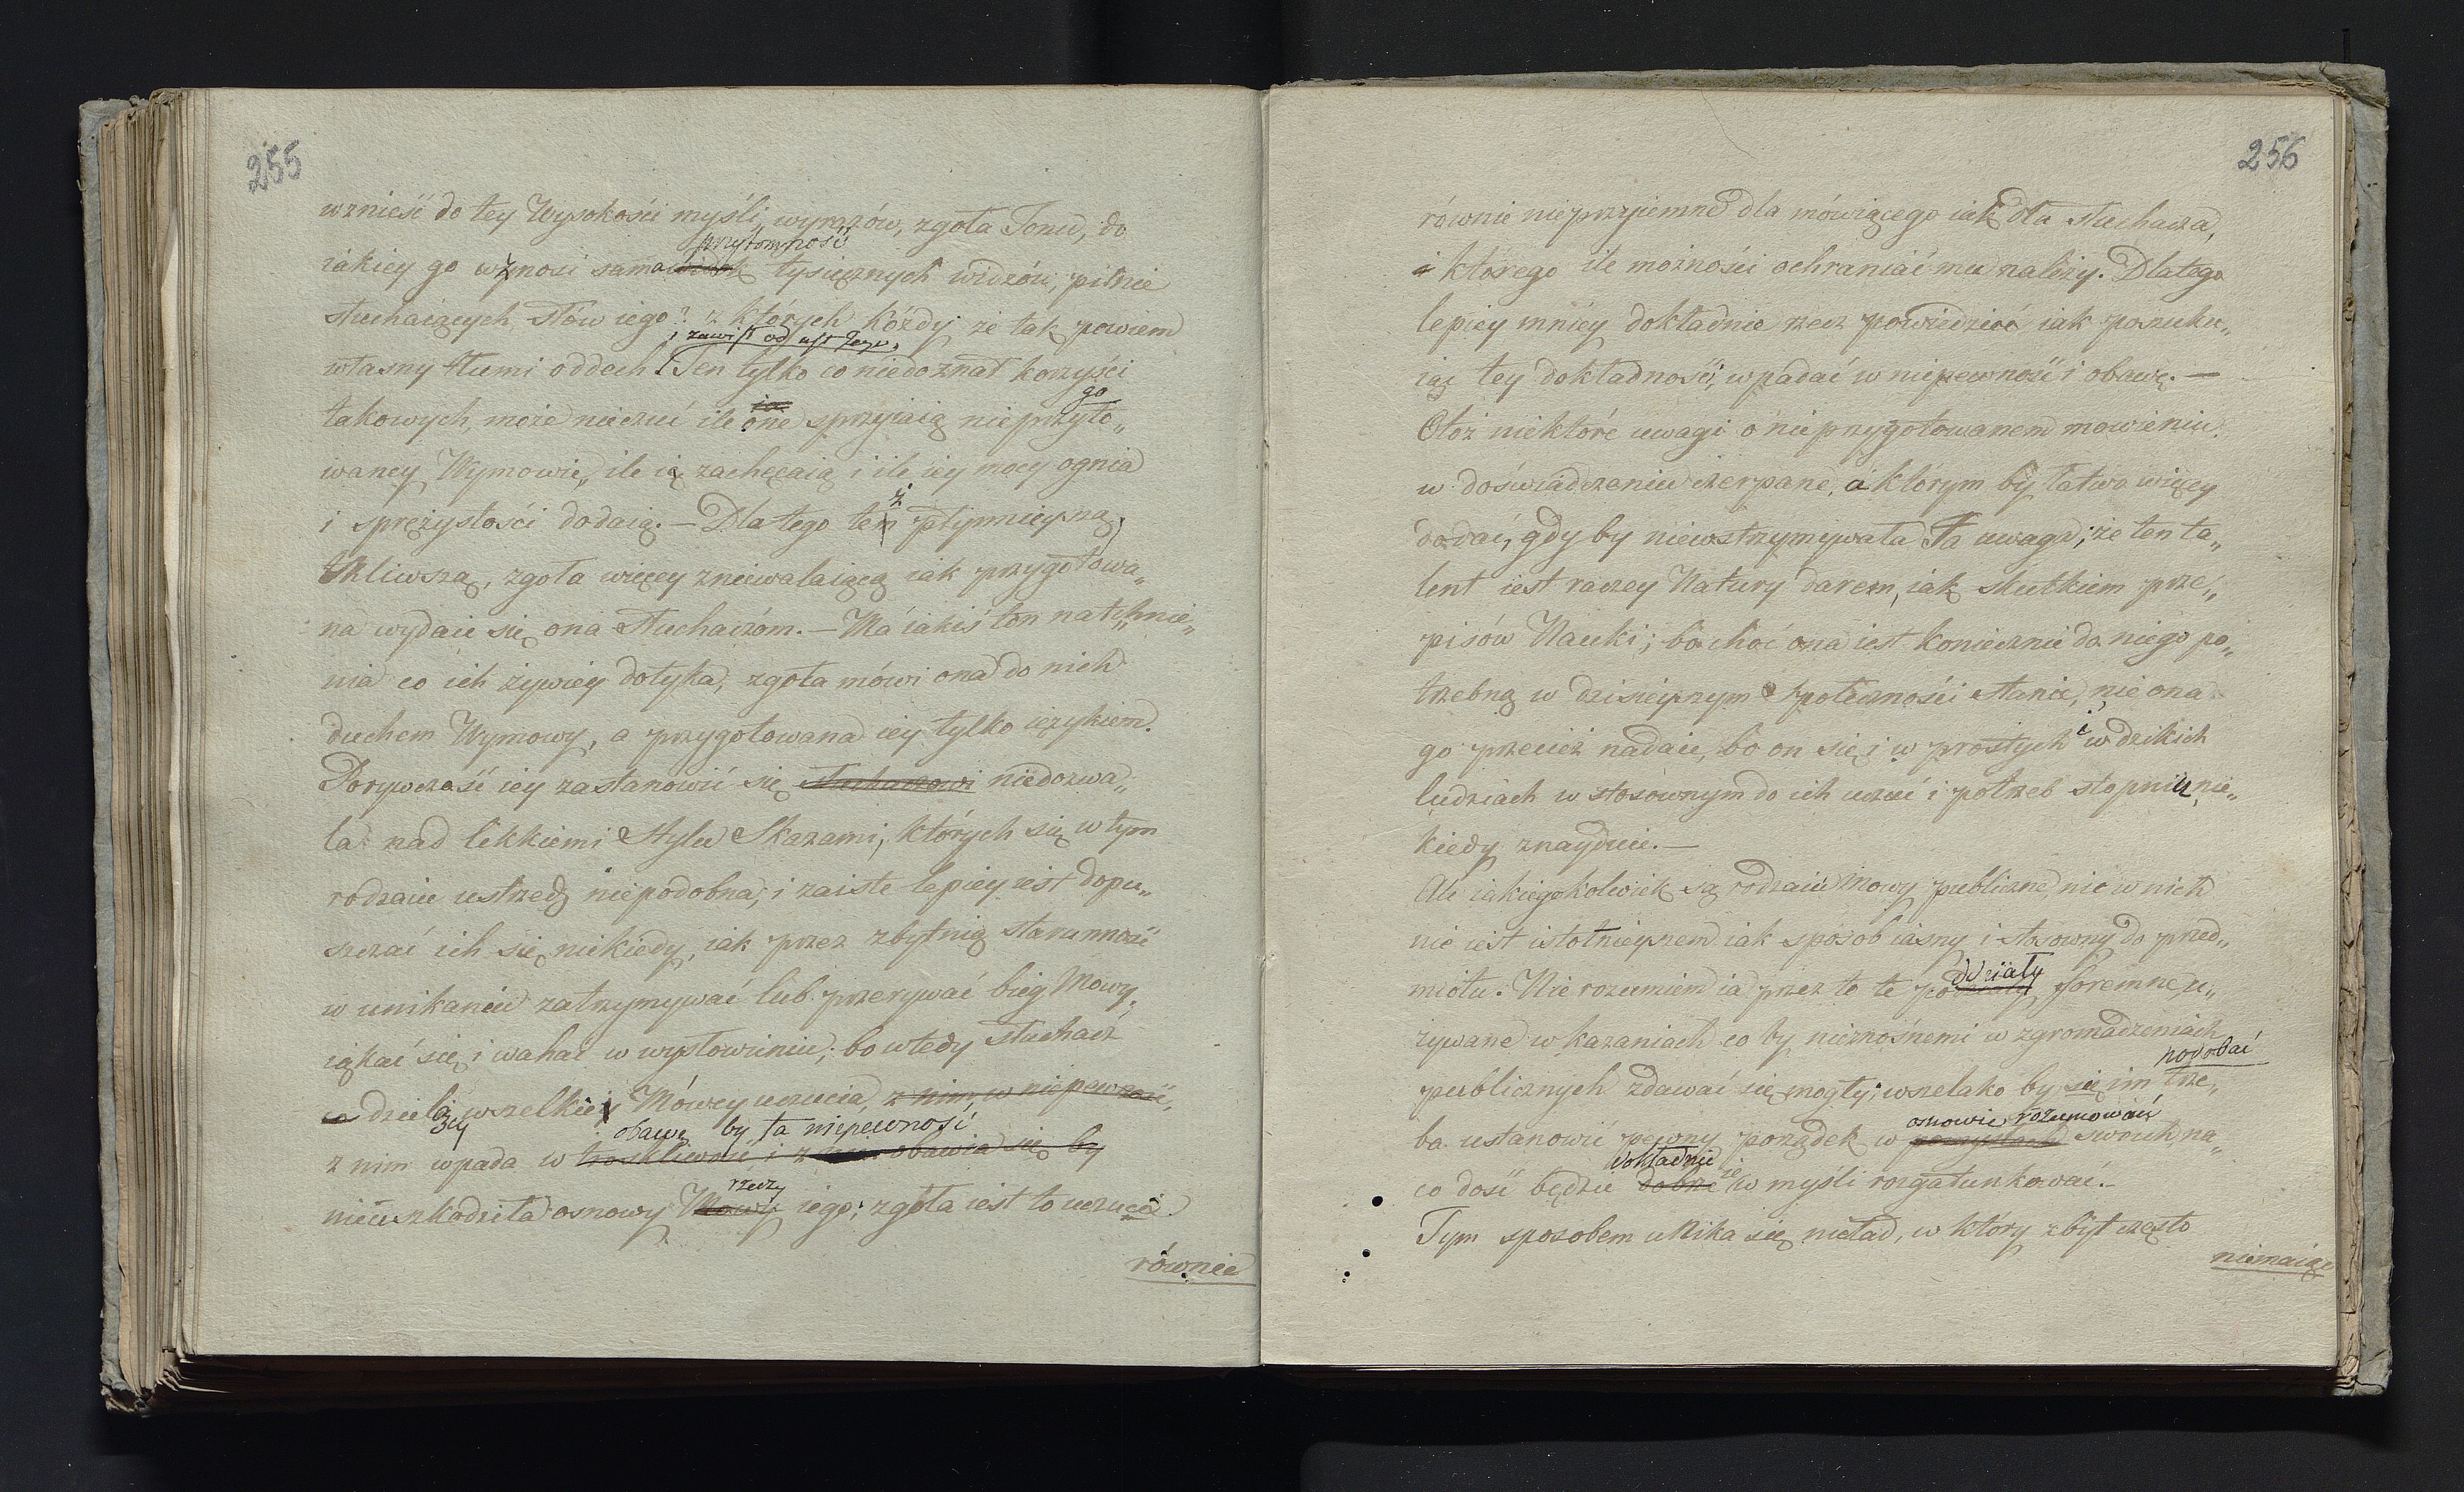 255
wznieść do tey Wysokości myśli, wyrazów, zgoła Tonu, do
przytomność
iakiey go wznosi sama widok tysiącznych widzów, pilnie
słuchaiących słów iego? z których każdy że tak powiem
i zawisł od ust Jego,
własny tłumi oddech! Ten tylko co niedoznał korzyści
ia go
takowych, może nieczuć ile one sprzyiaią nieprzyto„
waney Wymowie, ile ią zachęcaią i ile iey mocy ognia
i sprężystości dodaią. — Dla tego też płynnieyszą,
tkliwszą, zgoła więcey zniewalaiącą iak przygotowa„
na wydaie się ona słuchaczom. — Má iakiś ton natchnie„
nia co ich żywiey dotyka, zgoła mówi ona do nich
duchem Wymowy, a przygotowana iey tylko ięzykiem.
Porywczość iey zastanowić się słuchaczowi niedozwa„
la nad lekkiemi Stylu Skazami, których się w tym
rodzaiu ustrzedz niepodobna; i zaiste lepiey iest dopu„
szczać ich się niekiedy, iak przez zbytnią staranność
w unikaniu zatrzymywać lub przerywać bieg Mowy,
iąkać się i wahać w wysłowieniu; bo wtedy słuchacz
dzieląc wszelkie Mówcy uczucia, z nim, w niepewność,
obawę by ta niepewność
z nim wpada w troskliwość i z obawia się by
rzeczy
nieuszkodziła osnowy Mowy iego; zgoła iest to uczucie
równie
256
równie nieprzyiemne dla mówiącego iak dla słuchacza,
i którego ile możności ochraniać mu należy. Dlatego
lepiey mniey dokładnie rzecz powiedzieć iak poszuku„
iąc tey dokładności, wpadać w niepewność i obawę. —
Otoż niektóre uwagi o nieprzygotowanem mowieniu
w doświadczeniu czerpane, á którym by łatwo więcey
dodać, gdy by niewstrzymywała Ta uwaga; że ten ta„
lent iest raczey Natury darem, iak skutkiem prze„
pisów Nauki; bo choć ona iest koniecznie do niego po„
trzebną w dzisieyszym Społeczności stanie, nie ona
go przecież nadaie, bo on się i w prostych i w dzikich
ludziach w stosownym do ich uczuć i potrzeb stopniu nie„
kiedy znayduie. —
Ale iakiegokolwiek są rodzaiu Mowy publiczne, nic w nich
nie iest istotnieyszem iak sposob iasny i stosowny do przed„
działy
miotu. Nie rozumiem ia przez to te podziały foremne, u„
żywane w kazaniach co by nieznośnemi w zgromadzeniach
podobać
publicznych zdawać się mogły; wszelako by się im trze„
osnowie rozumowań
ba ustanowić pewny porządek w pomysłach swoich na„
dokładnie ie
co dość będzie dobrze w myśli rozgatunkować. —
Tym sposobem unika się nieład, w który zbyt często
niemaiąc